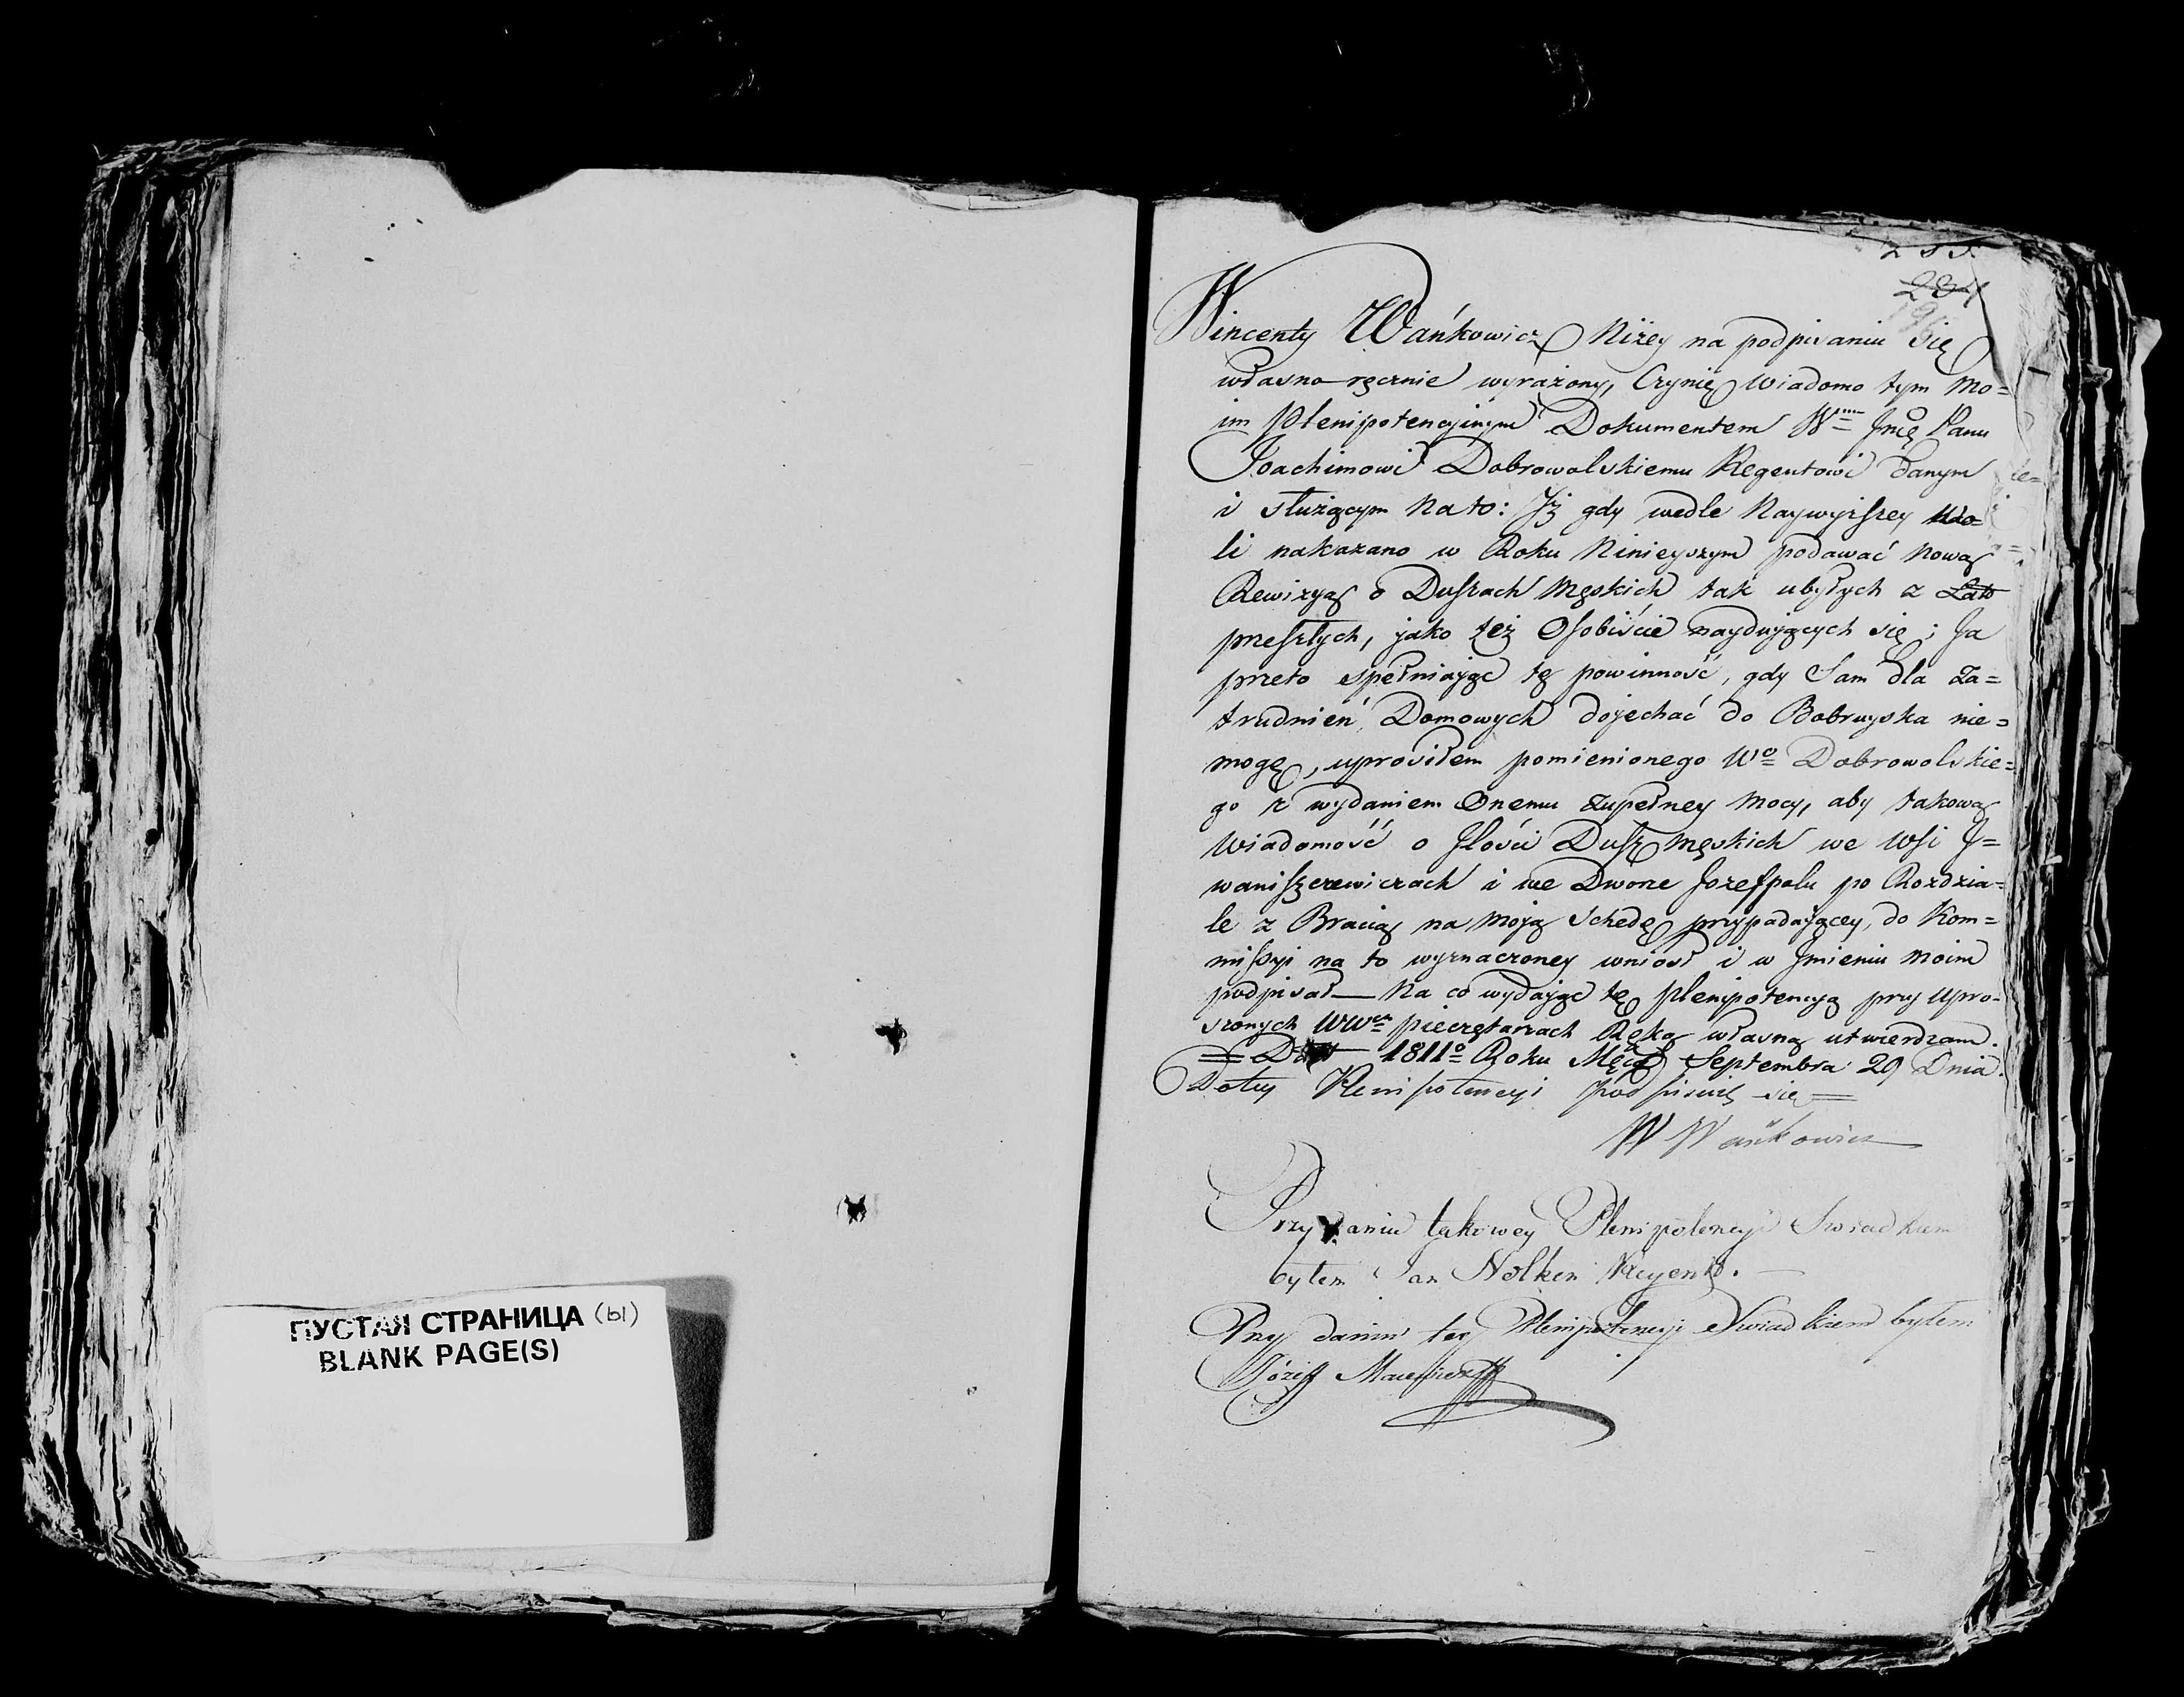 ПУСТАЯ СТРАНИЦА (ы)
BLANK PAGE(S)
Wincenty Wańkowicz Niżey na podpisaniu się
własno ręcznie wyrażony, Czynię wiadomo tym mo=
im Plenipotencyinym Dokumentem Wmu Jmę Panu
Joachimowi Dobrowolskiemu Regentowi danym
i służącym na to: Jż gdy wedle Naywyiſzey Wo=
li nakazano w Roku Ninieyszym podawać nową
Rewizyą o Duſzach Męskich tak ubyłych z Zało
przeſzłych, jako też Oſobiście nayduiących się; Ja
przeto spełniając tę powinność, gdy Sam dla Za=
trudnień Domowych dojechać do Bobruyska nie=
mogę, uprosiłem pomienionego Wo Dobrowolskie=
go z wydaniem Onemu zupełney mocy, aby takową
Wiadomość o Jlości Duſz męskich we Wſi J=
waniſzczewiczach i we Dworze Jozefpolu po Rozdzia=
le z Bracią na moją Schedę przypadającey, do Kom=
miſsyi na to wyznaczoney wniósł i w Jmieniu moim
podpisał — Na co wydając tę plenipotencyą przy Upro=
szonych WWch pieczętarzach Ręką własną utwierdzam.
= 1811o Roku Septembra 29 Dnia.
Do tey Plenipotencyi podpisuię się =
W Wańkowicz
Przy daniu takowey Plenipotencyi Swiadkiem
byłem Jan Nolken Regent.
Przy daniu tey Plenipotencyi Swiadkiem byłem
Józef